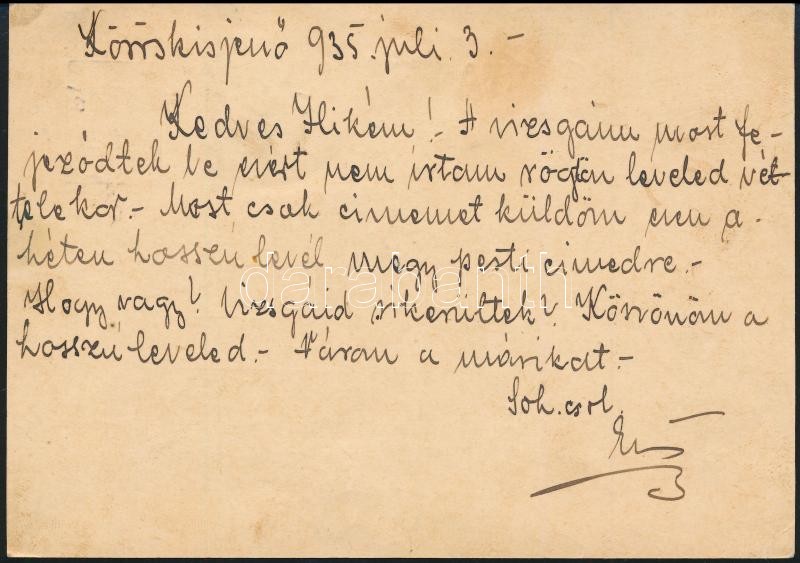 Köröskisjenő 935. juli. 3. -
Kedves Ilikém! - A vizsgáim most fe-
jeződtek be ezért nem írtam rögtön leveled vét-
telekor. - Most csak cimemet küldöm ezen a
héten hosszú levél megy pesti cimedre. -
Hogy vagy? Vizsgáid sikerültek? Köszönöm a
hosszú leveled. - Várom a másikat. -
Sok. csól.
darabanth